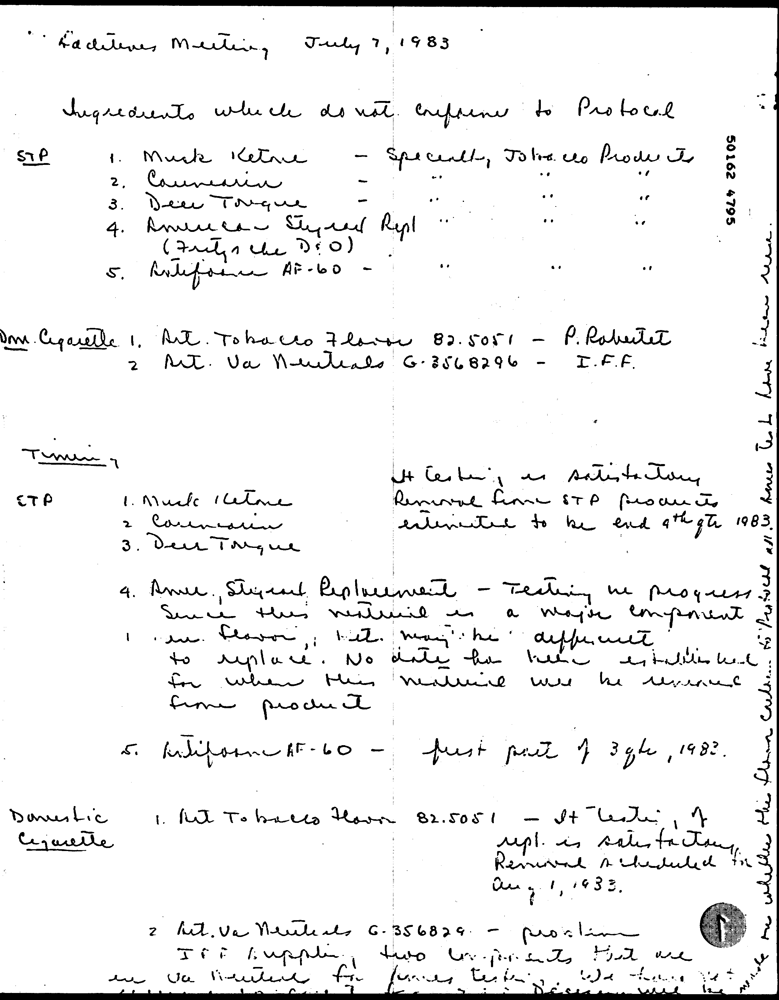 Additives Meeting July 7, 1983
Ingredients which do not conform to Protocol
STP 1. Musk Ketone - Specialty Tobacco Products
2. Coumarin - " " "
3. Deer Tongue - " " "
4. American Styrax Repl " " "
(Fritzsche D&O)
5. Antifoam AF-60 - " " "
Dom. Cigarette 1. Art. Tobacco Flavor 82.5051 - P. Robertet
2 Art. Va Neutrals G-3568296 - I.F.F.
Timing
STP 1. Musk Ketone
2 Coumarin
3. Deer Tongue
If testing is satisfactory
Removal from STP products
estimated to be end 4th qtr 1983
4. Amer. Styrax Replacement - Testing in progress.
Since this material is a major component
in flavor, it may be difficult
to replace. No date has been established
for when this material will be removed
from product
5. Antifoam AF-60 - first part of 3 qtr, 1983.
Domestic
Cigarette
1. Art Tobacco Flavor 82.5051 - If testing of
repl. is satisfactory
Removal scheduled for
Aug 1, 1983.
2 Art. Va Neutrals G-356829 - problem
IFF supplying two components that are
in Va Neutral for testing. We have
50162 4795
whether this flavor to Protocol all tests have been
1